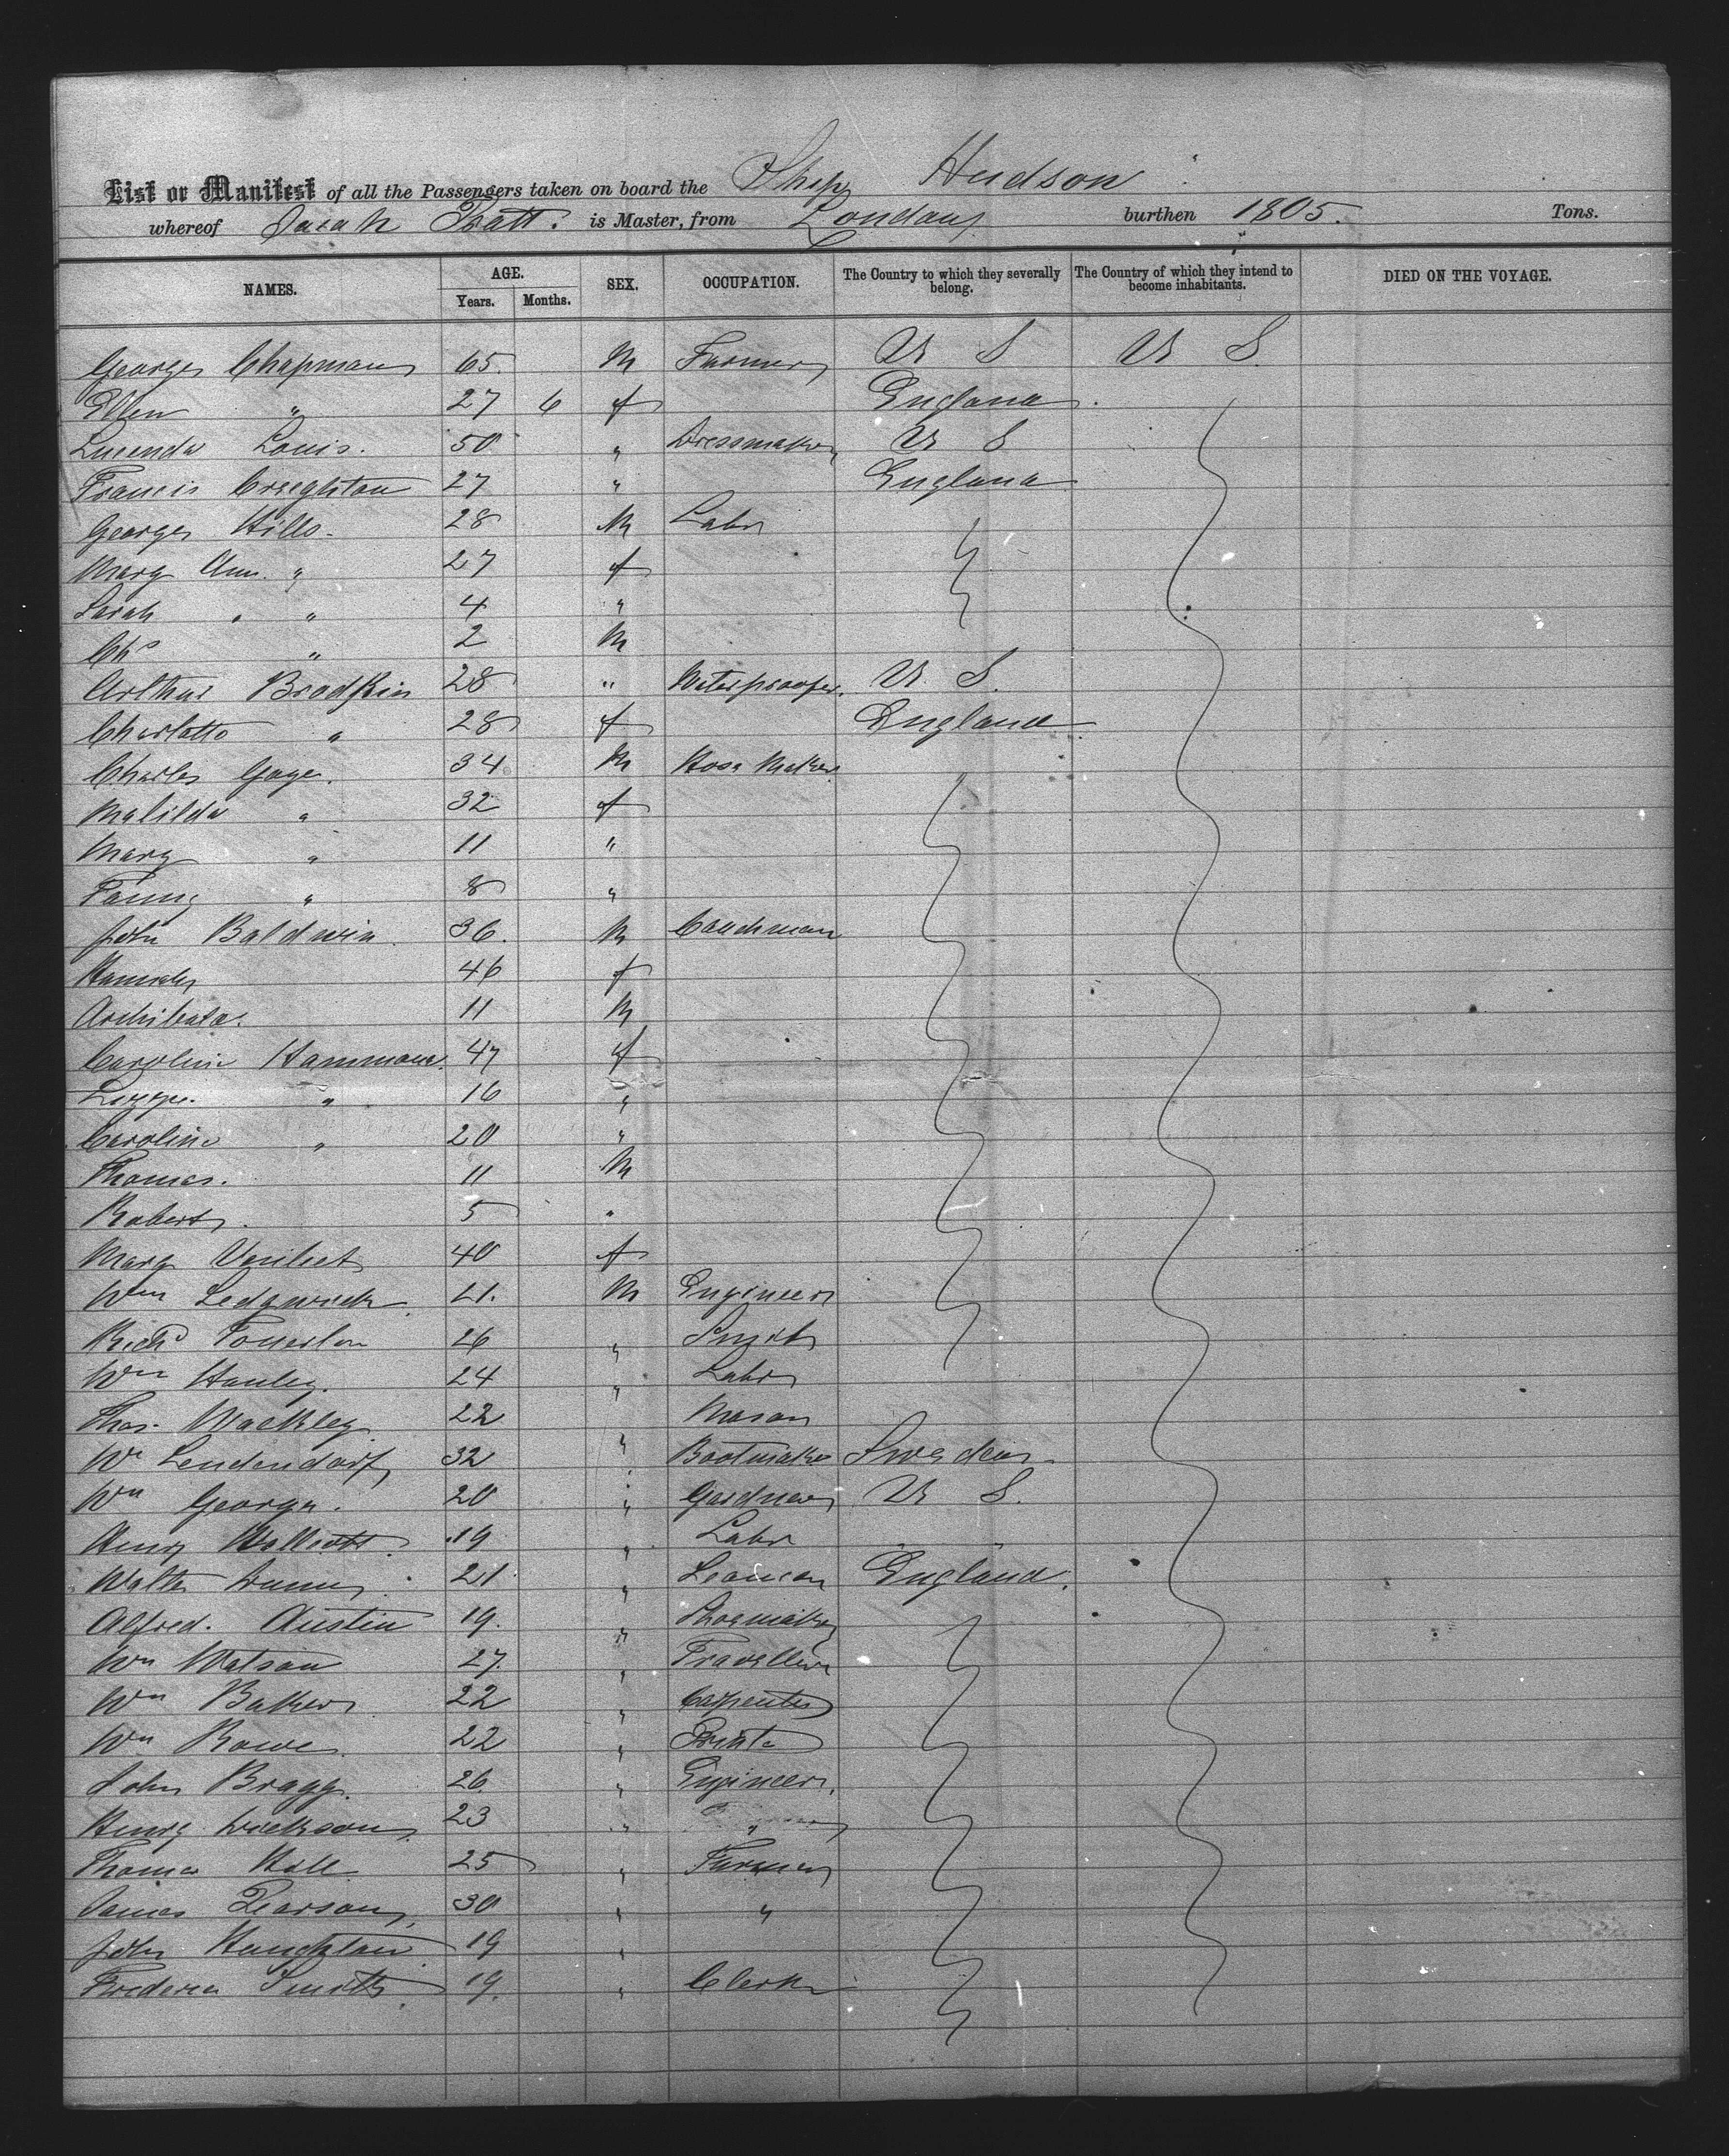 List or Manifest of all the Passengers taken on board the Ship Hudson
whereof Isaiah Pratt. is Master, from London burthen 1805. Tons.
NAMES. AGE. SEX. OCCUPATION. The Country to which they severally belong. The Country of which they intend to become inhabitants. DIED ON THE VOYAGE.
Years. Months.
George Chapman 65. M Farmer U S U S.
Ellen " 27 6 f England.
Lucenda Louis. 50 " Dressmaker U S
Francis Creighton 27 " England
George Hills. 28 M Labr
Mary Ann. " 27 f
Sarah " " 4 "
Chs " 2 M
Arthur Brodkin 28 " Waterproofer. U. S.
Charlotte " 28 f England
Charles Gage. 34 M Hose Maker.
Matilda " 32 f
Mary " 11 "
Fanny " 8 "
John Baldwin. 36. M Coachman
Hannah 46 f
Archibald. 11 M
Caroline Hammond. 47 f
Lizzie. " 16 "
Caroline " 20 "
Thomas. 11 M
Robert. 5 "
Mary 40 f
Wm Sedgwick 21. M Engineer
Richd 26 " Smith
Wm Hanley. 24 " Labr
Thos. Wackley 22 " Mason
Wm Lendendorf 32 " Bootmaker Sweden.
Wm George. 20 " Gardner U S.
Henry 19 " Labr
Walter Dunn 21 " Seaman England.
Alfred. Austin 19. " Shoemaker
Wm Watson 27. " Traveller
Wm Baker 22 " Carpenter
Wm Rowe. 22 " Printer
John Bragg. 26 " Engineer.
Henry Dickson 23 " "
Thomas Hall 25 " Farmer
James Pearson 30 " "
John 19 "
Frederic Smith. 19. " Clerk